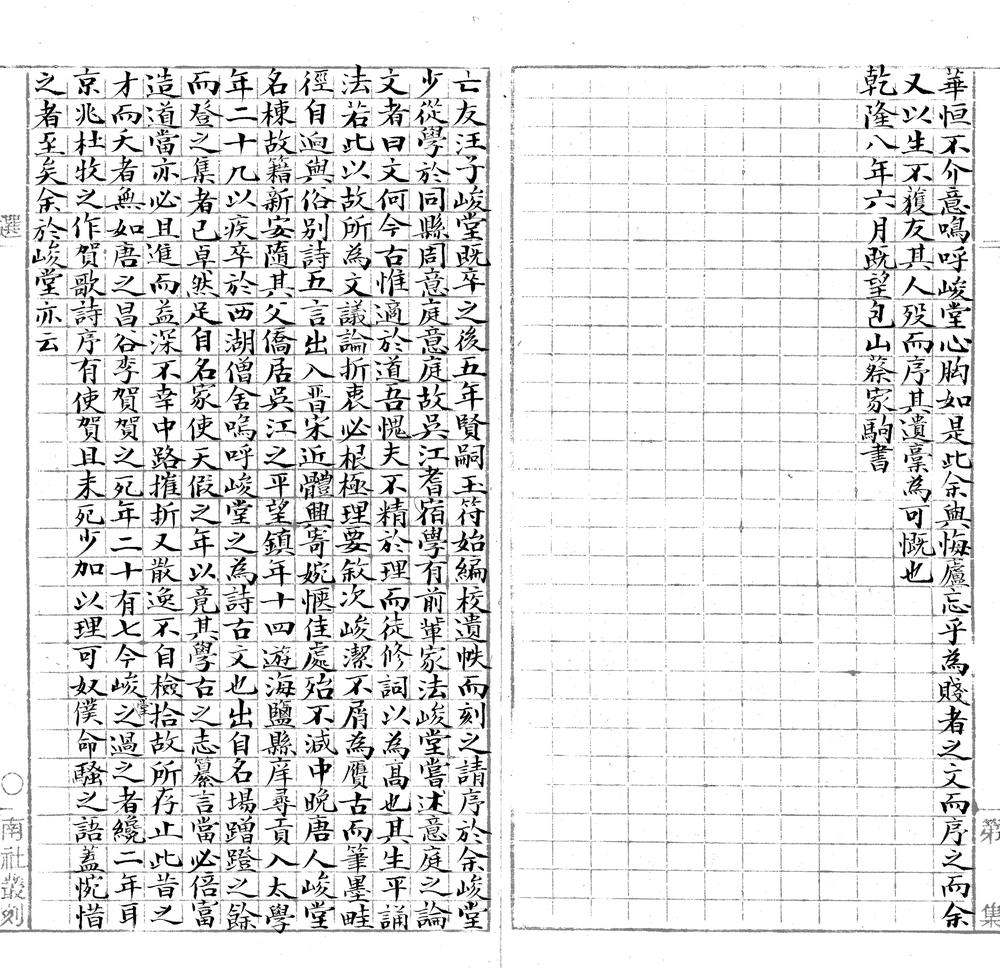 華恒不介意鳴呼峻堂心胸如是此余與悔廬忘乎為賤者之文而序之而余
又以生不獲友其人歿而序其遺稾為可慨也
乾隆八年六月既望包山蔡家駒書
第
集
亡友汪子峻堂既卒之後五年賢嗣玉符始編校遺帙而刻之請序於余峻堂
少從學於同縣周意庭意庭故吳江耆宿學有前輩家法峻堂嘗述意庭之論
文者曰文何今古惟適於道吾愧夫不精於理而徒修詞以為高也其生平誦
法若此以故所為文議論折衷必根極理要敘次峻潔不屑為贋古而筆墨畦
徑自迥與俗別詩五言出入晋宋近體興寄婉愜佳處殆不減中晚唐人峻堂
名棟故籍新安隨其父僑居吳江之平望鎮年十四遊海鹽縣庠尋貢入太學
年二十九以疾卒於西湖僧舍嗚呼峻堂之為詩古文也出自名場蹭蹬之餘
而登之集者已卓然足自名家使天假之年以竟其學古之志纂言當必倍富
造道當亦必且進而益深不幸中路摧折又散逸不自檢拾故所存止此昔之
才而夭者無如唐之昌谷李賀賀之死年二十有七今峻堂之過之者纔二年耳
京兆杜牧之作賀歌詩序有使賀且未死少加以理可奴僕命騷之語蓋惋惜
之者至矣余於峻堂亦云
選
○
南社叢刻